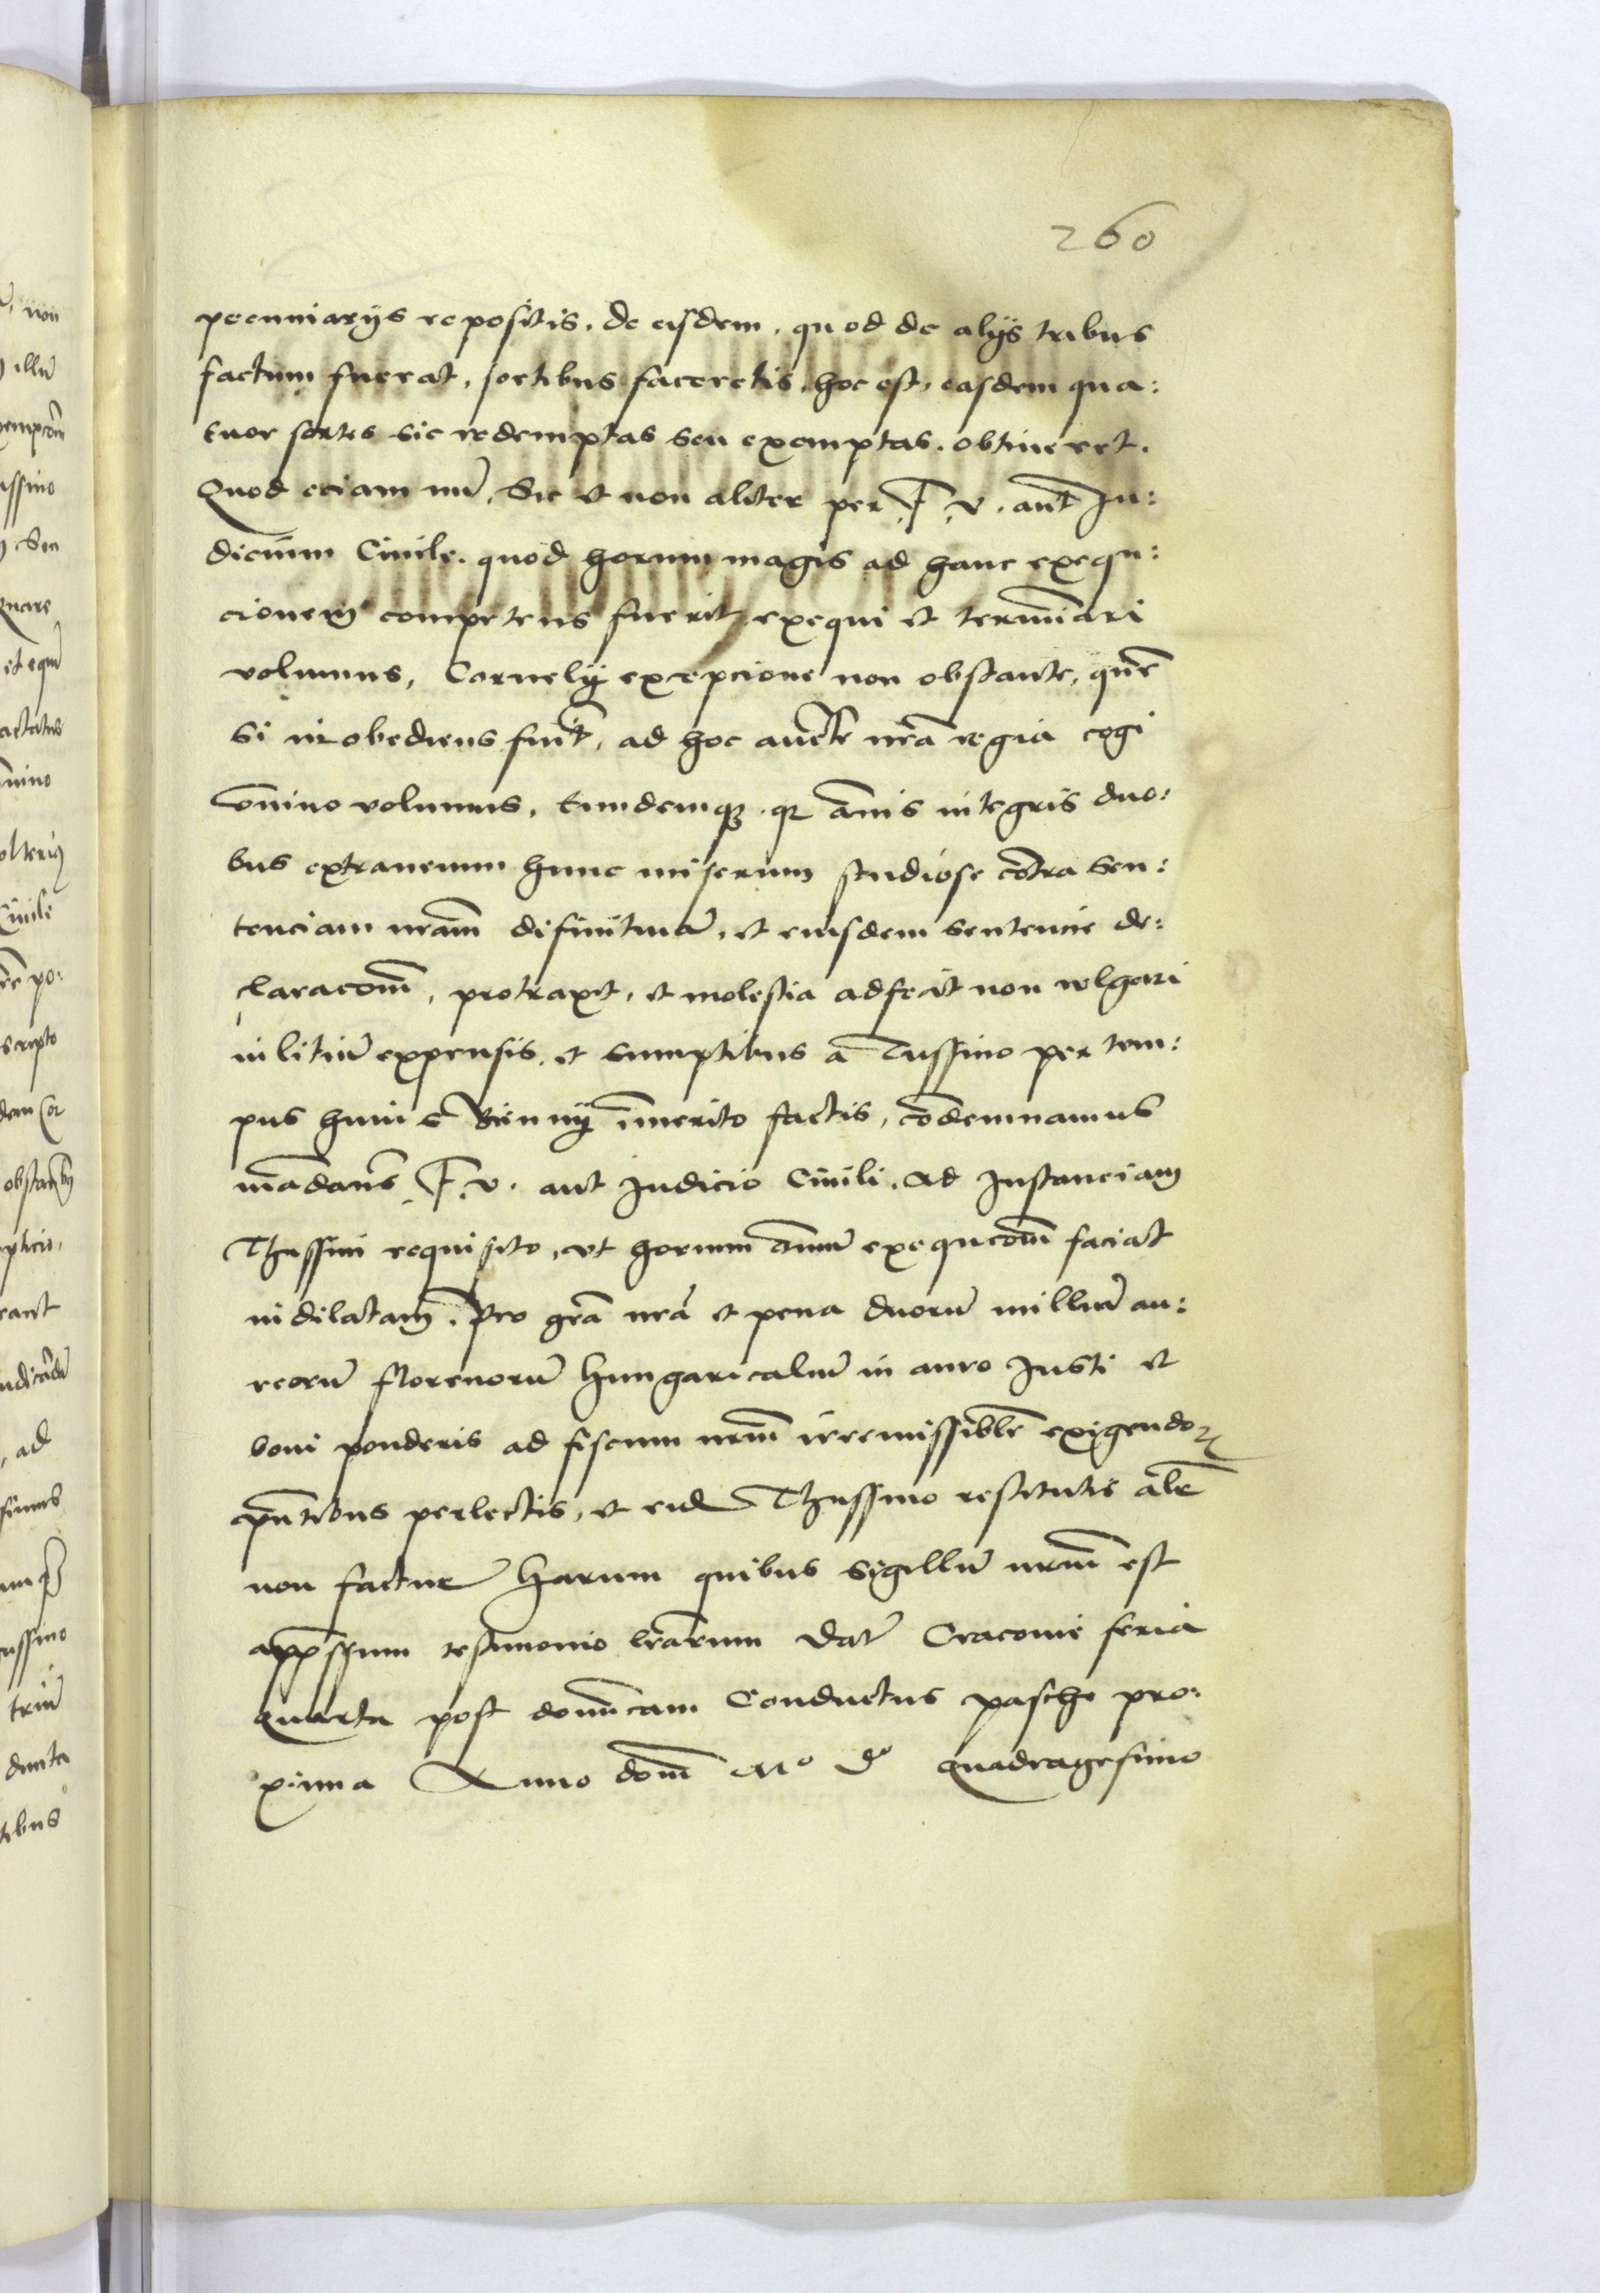 260
pecuniarijs repositis. de eisdem. quod de alijs tribus
factum fuerat, sortibus faceretis. hoc est, easdem qua:
tuor sortes sic redemptas seu exemptas. obtineret.
Quod eciam nūc, Sic et non aliter per .F. v. aut Ju:
dicium Ciuile. quod horum magis ad hanc exequ:
cionem competens fuerit exequi et termīari
volumus, Cornelij excepcione non obstante, quē
si inobediens fuīt, ad hoc aucte nr̄a regia cogi
om̄ino volumus, Eundemq3 . q2 annis integris duo:
bus extraneum hunc miserum studiose cōtra sen:
tenciam nr̄am difinitiuā, et eiusdem sentencie de:
claracōm, protraxit, et molestia adfecit non vulgari
in litiū expensis, et sumptibus a Tussino per tem:
pus huius Biennij īmerito factis, cōdemnamus
mādans .F. v. aut Judicio Ciuili. Ad Instanciam
Thussini requisito, vt horum oīum exequcōm faciat
indilatam. Pro grā nr̄a et pena duorū milliū au:
reorū florenorū Hungaricaliū in auro Justi et
boni ponderis ad fiscum nrm̄ irremissiblē exigendo2
pn̄tibus perlectis, et eid Thussino restitutis alē
non factur̄ Harum quibus Sigillū nrm̄ est
appēssum testimonio lr̄arum Dat̄ Cracouie feria
Quarta post domīcam Conductus pasche pro:
xima Anno dom̄ Mº Dº Quadragesimo